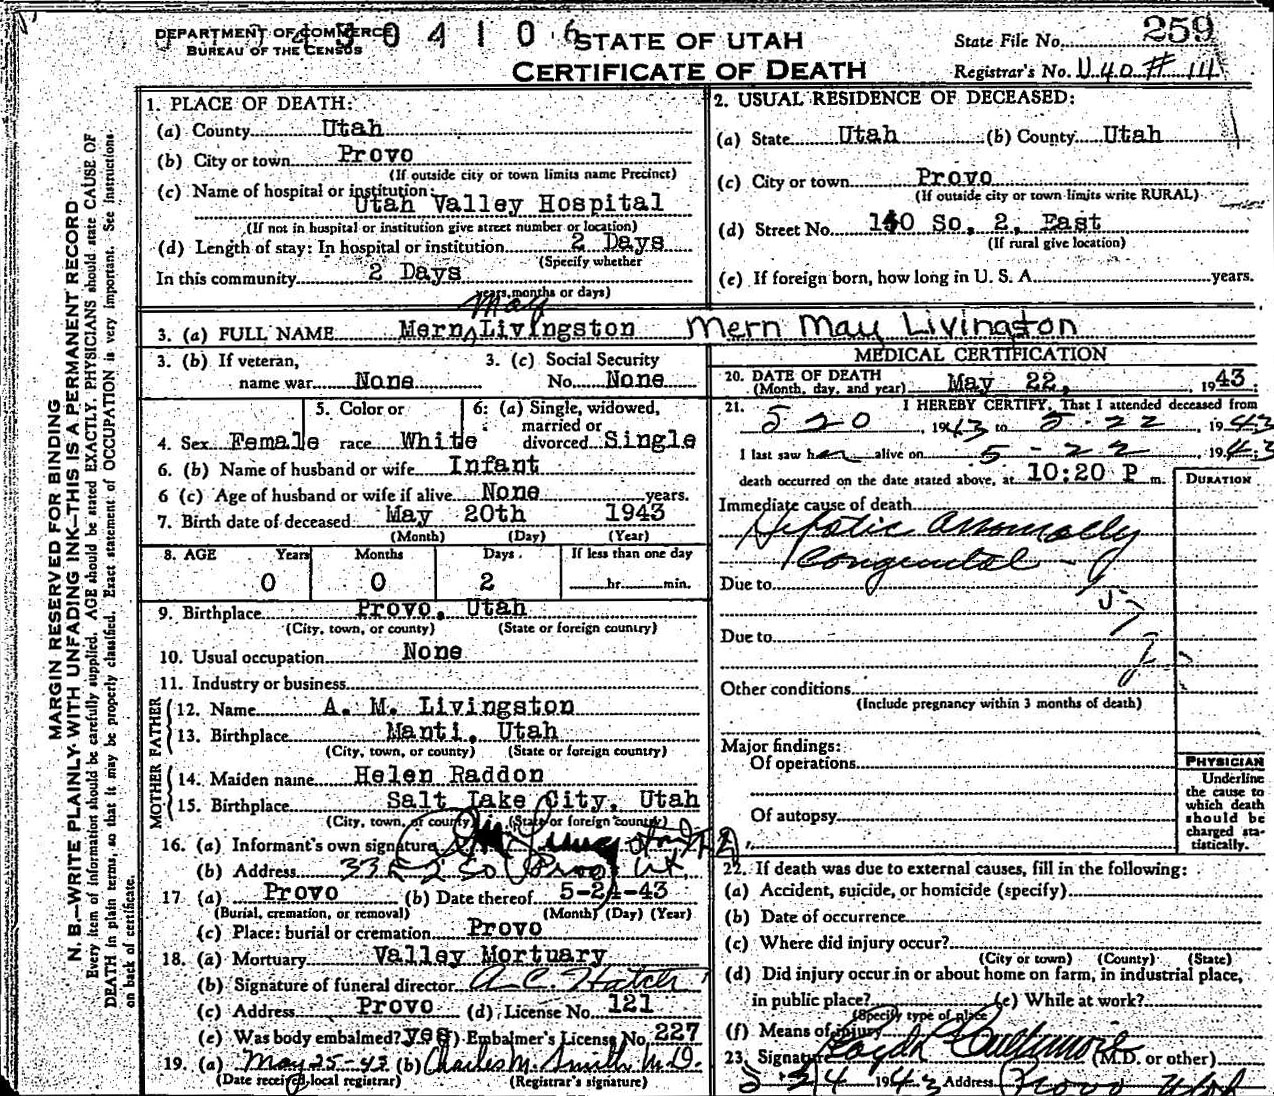 DEPARTMENT OF COMMERCE
BUREAU OF THE CENSUS
04106
STATE OF UTAH
CERTIFICATE OF DEATH
State File No. 259
Registrar's No. U40 # 111
MARGIN RESERVED FOR BINDING
N. B.—WRITE PLAINLY WITH UNFADING INK—THIS IS A PERMANENT RECORD
Every item of information should be carefully supplied. AGE should be stated EXACTLY. PHYSICIANS should state CAUSE OF
DEATH in plain terms, so that it may be properly classified. Exact statement of OCCUPATION is very important. See instructions
on back of certificate.
1. PLACE OF DEATH:
(a) County Utah
(b) City or town Provo
(If outside city or town limits name Precinct)
(c) Name of hospital or institution:
Utah Valley Hospital
(If not in hospital or institution give street number or location)
(d) Length of stay: In hospital or institution 2 Days
(Specify whether
In this community 2 Days
years, months or days)
2. USUAL RESIDENCE OF DECEASED:
(a) State Utah (b) County Utah
(c) City or town Provo
(If outside city or town limits write RURAL)
(d) Street No. 140 So. 2, East
(If rural give location)
(e) If foreign born, how long in U. S. A. years.
May
3. (a) FULL NAME Mern Livingston Mern May Livingston
3. (b) If veteran,
name war None
3. (c) Social Security
No. None
4. Sex Female
5. Color or
race White
6: (a) Single, widowed,
married or
divorced Single
6. (b) Name of husband or wife Infant
6 (c) Age of husband or wife if alive None years.
7. Birth date of deceased May 20th 1943
(Month) (Day) (Year)
8. AGE Years Months Days If less than one day
0 0 2 hr. min.
9. Birthplace Provo, Utah
(City, town, or county) (State or foreign country)
10. Usual occupation None
11. Industry or business
FATHER
12. Name A. M. Livingston
13. Birthplace Manti, Utah
(City, town, or county) (State or foreign country)
MOTHER
14. Maiden name Helen Raddon
15. Birthplace Salt Lake City, Utah
(City, town, or county) (State or foreign country)
16. (a) Informant's own signature
(b) Address Provo Ut
17 (a) Provo (b) Date thereof 5-24-43
(Burial, cremation, or removal) (Month) (Day) (Year)
(c) Place: burial or cremation Provo
18. (a) Mortuary Valley Mortuary
(b) Signature of funeral director A. C. Hatch
(c) Address Provo (d) License No. 121
(e) Was body embalmed? yes Embalmer's License No. 227
19. (a) May 25-43 (b) Charles M. Smith M. D.
(Date received local registrar) (Registrar's signature)
MEDICAL CERTIFICATION
20. DATE OF DEATH
(Month, day, and year) May 22, 1943
21. I HEREBY CERTIFY, That I attended deceased from
5 20, 1943 to 5-22, 1943
I last saw her alive on 5-22, 1943
death occurred on the date stated above, at 10:20 P m.
DURATION
Immediate cause of death
Hepatic Anomally
Congenital
Due to
Due to
Other conditions
(Include pregnancy within 3 months of death)
Major findings:
Of operations
Of autopsy
PHYSICIAN
Underline
the cause to
which death
should be
charged sta-
tistically.
22. If death was due to external causes, fill in the following:
(a) Accident, suicide, or homicide (specify)
(b) Date of occurrence
(c) Where did injury occur?
(City or town) (County) (State)
(d) Did injury occur in or about home on farm, in industrial place,
in public place? (e) While at work?
(Specify type of place
(f) Means of injury
23. Signature (M.D. or other)
5-24 1943 Address Provo Utah